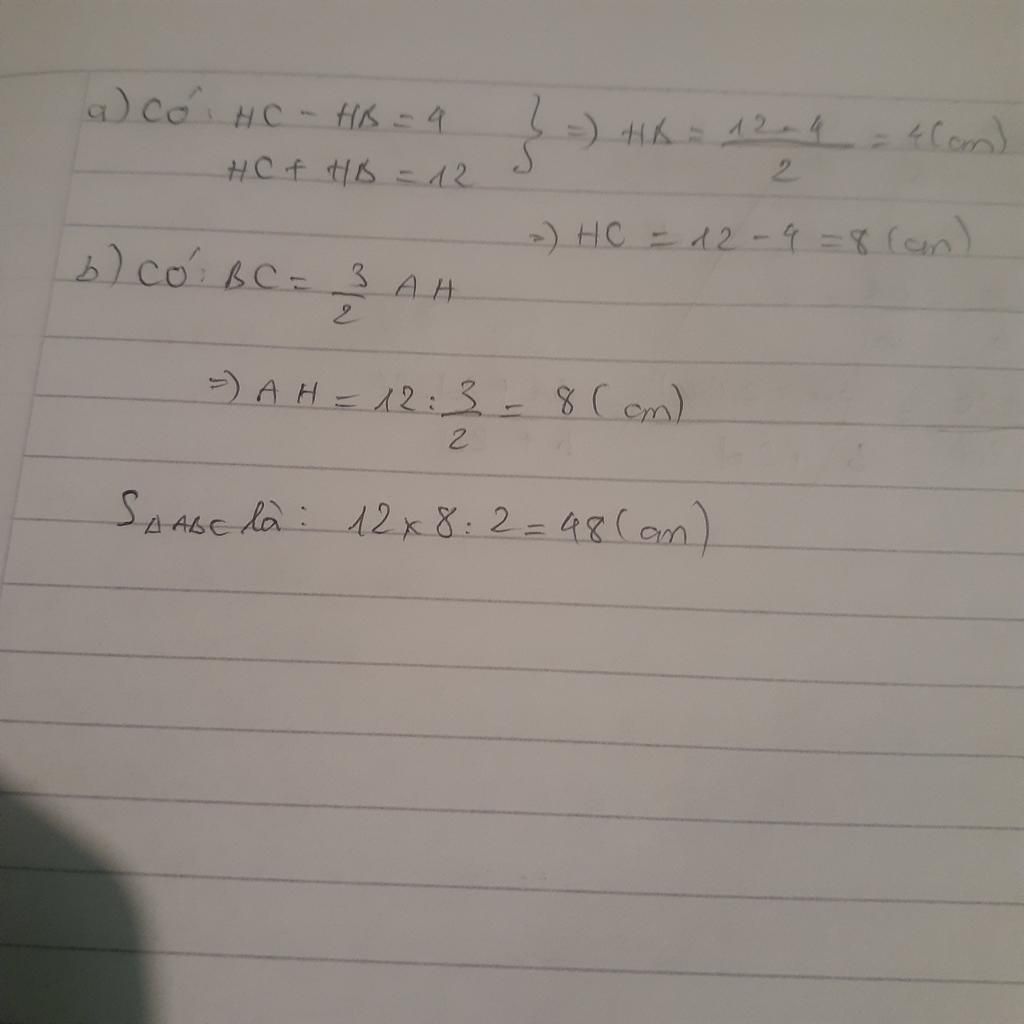 a) Có: HC - HB = 4 } => HB = \frac{12-4}{2} = 4 (cm)
HC + HB = 12
=> HC = 12 - 4 = 8 (cm)
b) Có: BC = \frac{3}{2} AH
=> AH = 12 : \frac{3}{2} = 8 (cm)
S_{ΔABC} là: 12 x 8 : 2 = 48 (cm)